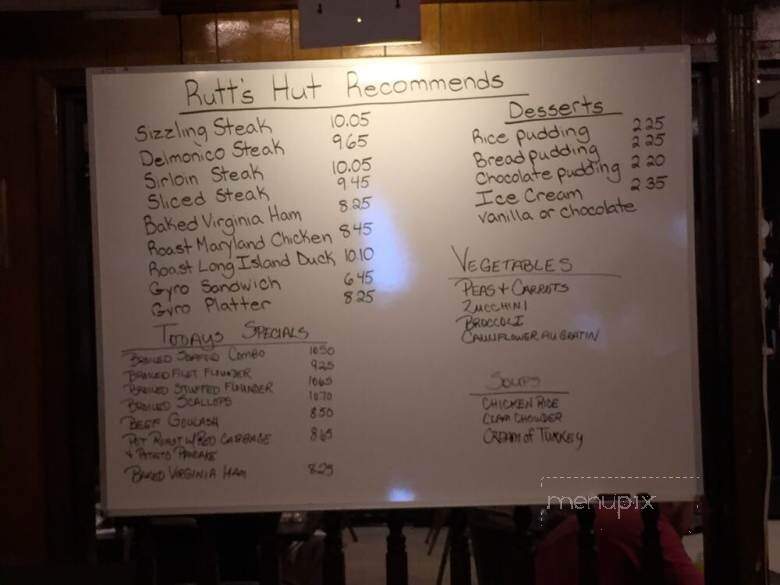 Rutt's Hut Recommends
Sizzling Steak 10.05
Delmonico Steak 9.65
Sirloin Steak 10.05
Sliced Steak 9.45
Baked Virginia Ham 8.25
Roast Maryland Chicken 8.45
Roast Long Island Duck 10.10
Gyro Sandwich 6.45
Gyro Platter 8.25
Todays Specials
Broiled Seafood Combo 10.50
Broiled Filet Flounder 9.25
Broiled Stuffed Flounder 10.65
Broiled Scallops 10.70
Beef Goulash 8.50
Pot Roast w/Red Cabbage 8.65
& Potato Pancake
Baked Virginia Ham 8.25
Desserts
Rice pudding 2 25
Bread pudding 2 25
Chocolate pudding 2 20
Ice Cream 2 35
vanilla or chocolate
Vegetables
Peas & Carrots
Zucchini
Broccoli
Cauliflower Au Gratin
Soups
Chicken Rice
Clam Chowder
Cream of Turkey
menupix